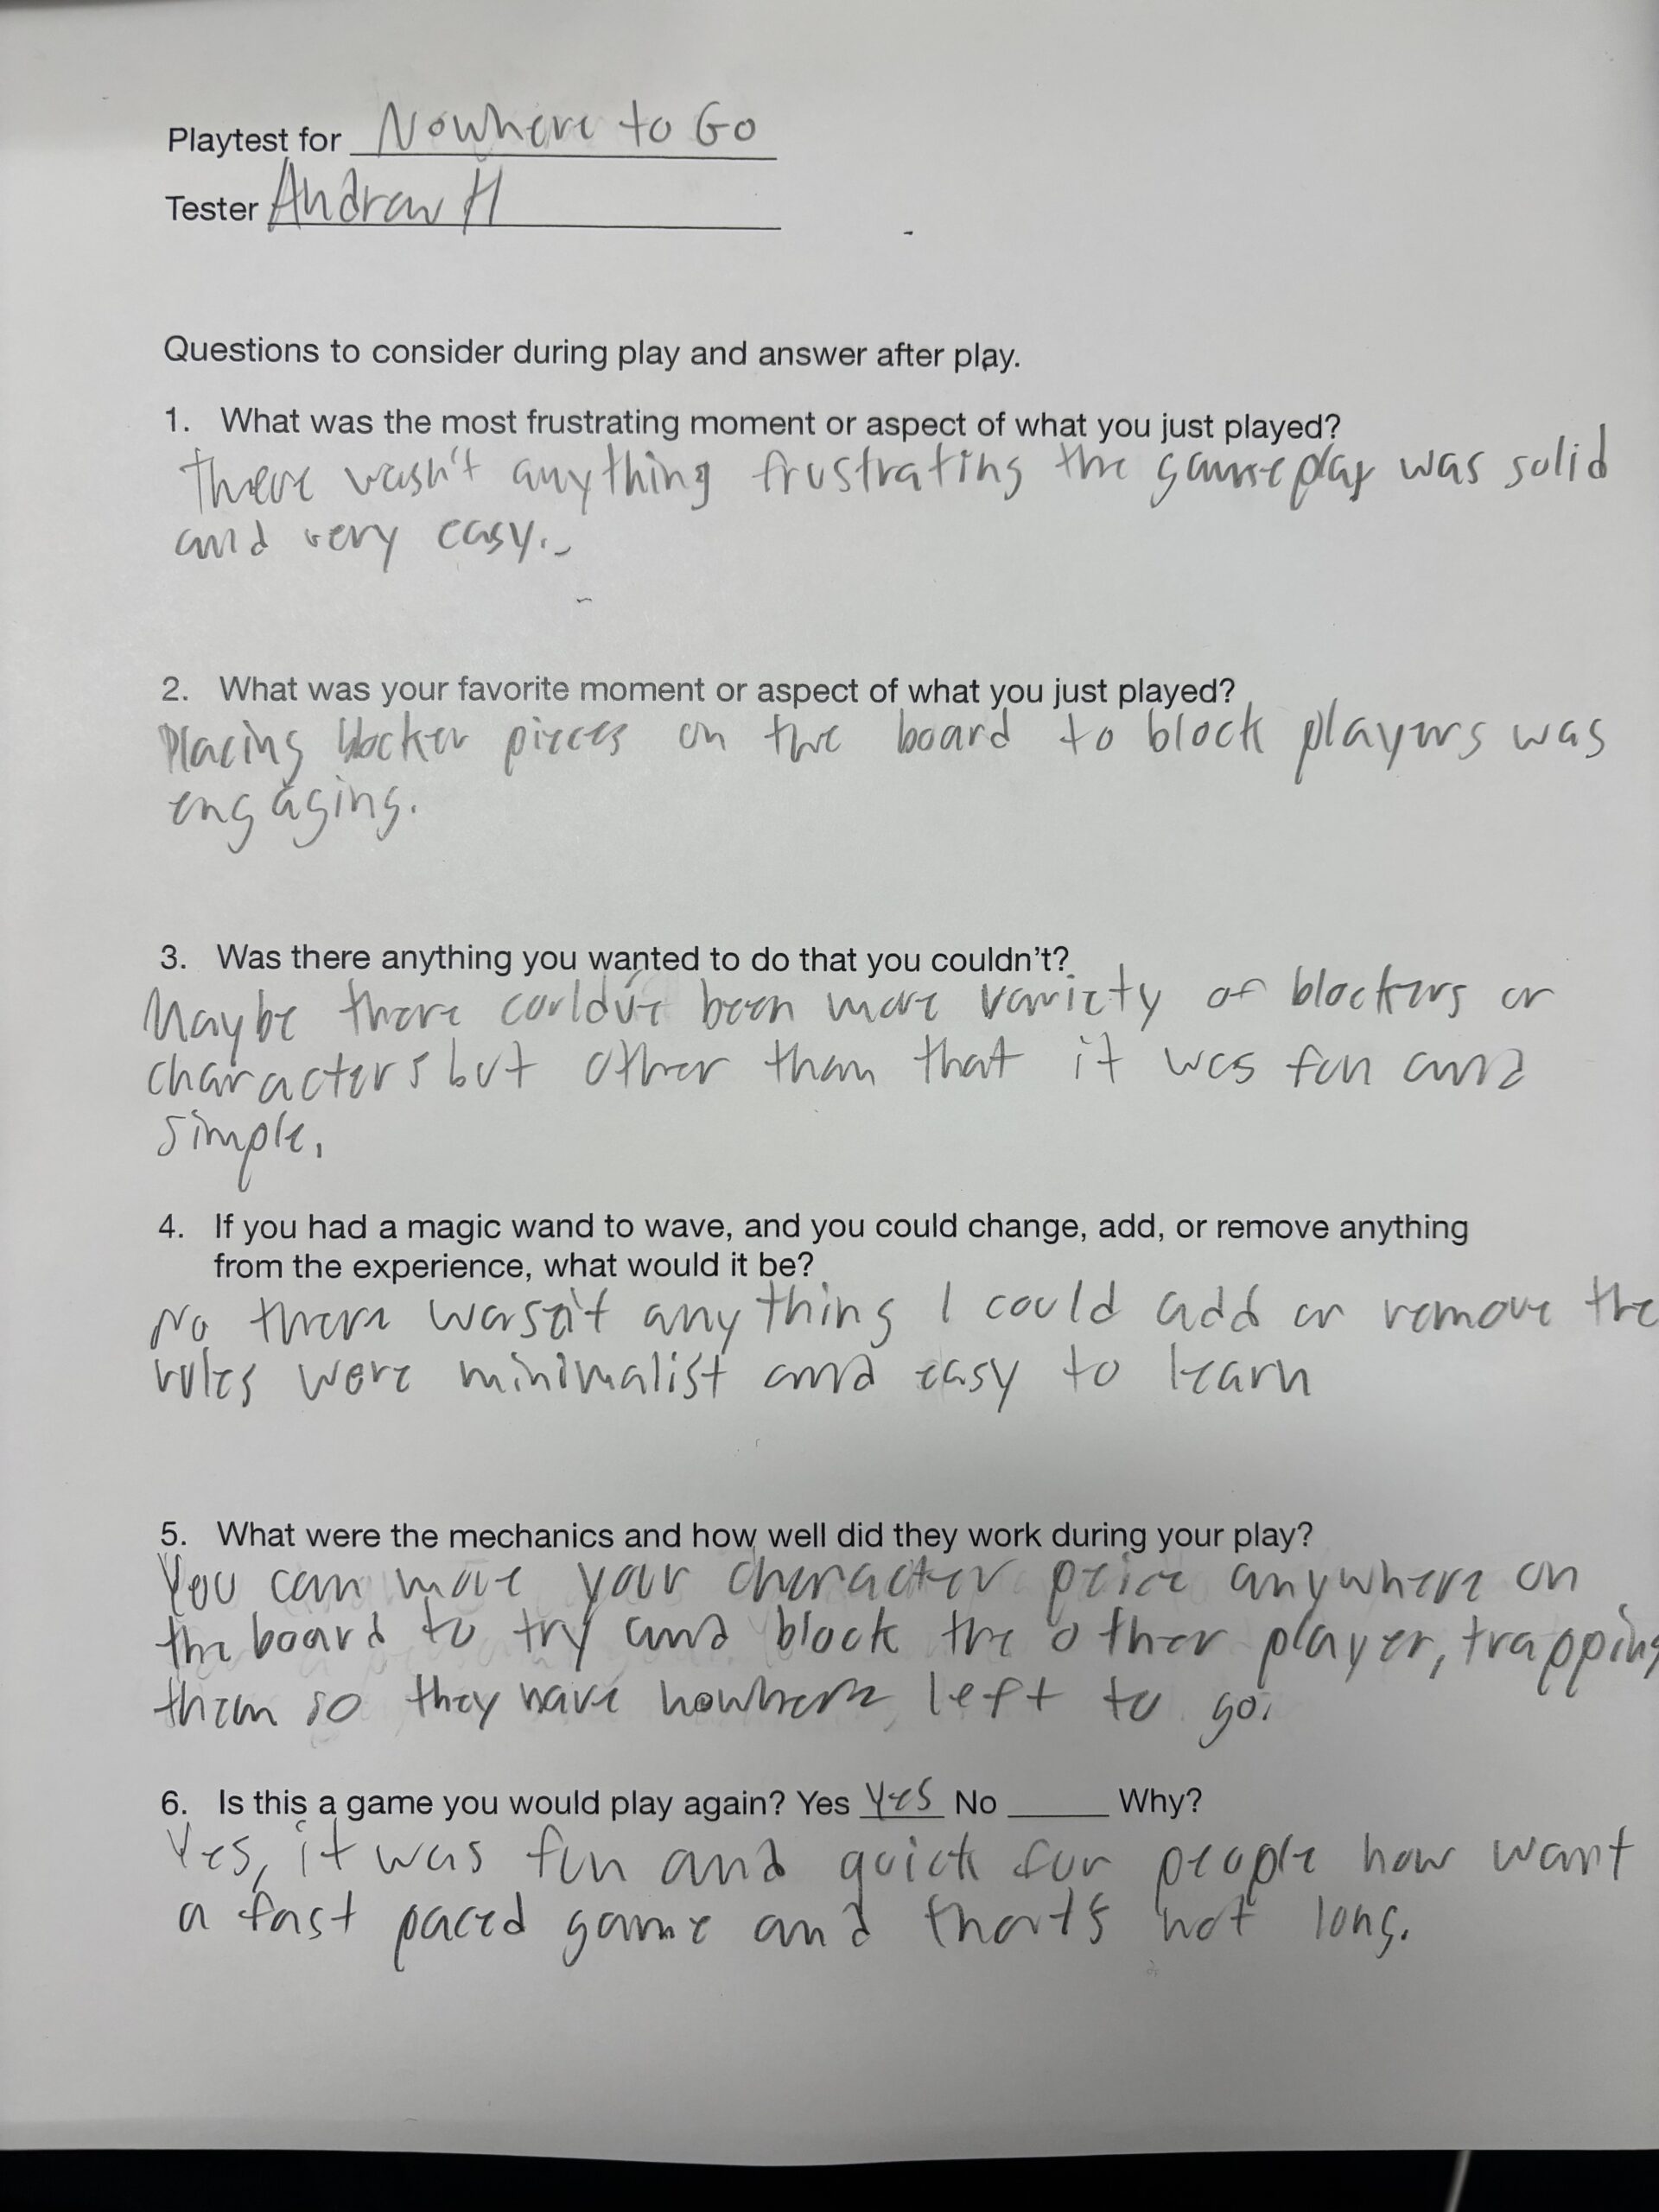 Playtest for Nowhere to Go
Tester Andrew H
Questions to consider during play and answer after play.
1. What was the most frustrating moment or aspect of what you just played?
there wasn't anything frustrating the gameplay was solid
and very easy.
2. What was your favorite moment or aspect of what you just played?
Placing blocker pieces on the board to block players was
engaging.
3. Was there anything you wanted to do that you couldn't?
Maybe there could've been more variety of blockers or
characters but other than that it was fun and
simple.
4. If you had a magic wand to wave, and you could change, add, or remove anything
from the experience, what would it be?
No there wasn't anything I could add or remove the
rules were minimalist and easy to learn
5. What were the mechanics and how well did they work during your play?
You can move your character peice anywhere on
the board to try and block the other player, trapping
them so they have nowhere left to go.
6. Is this a game you would play again? Yes Yes No ______ Why?
Yes, it was fun and quick for people how want
a fast paced game and that's not long.